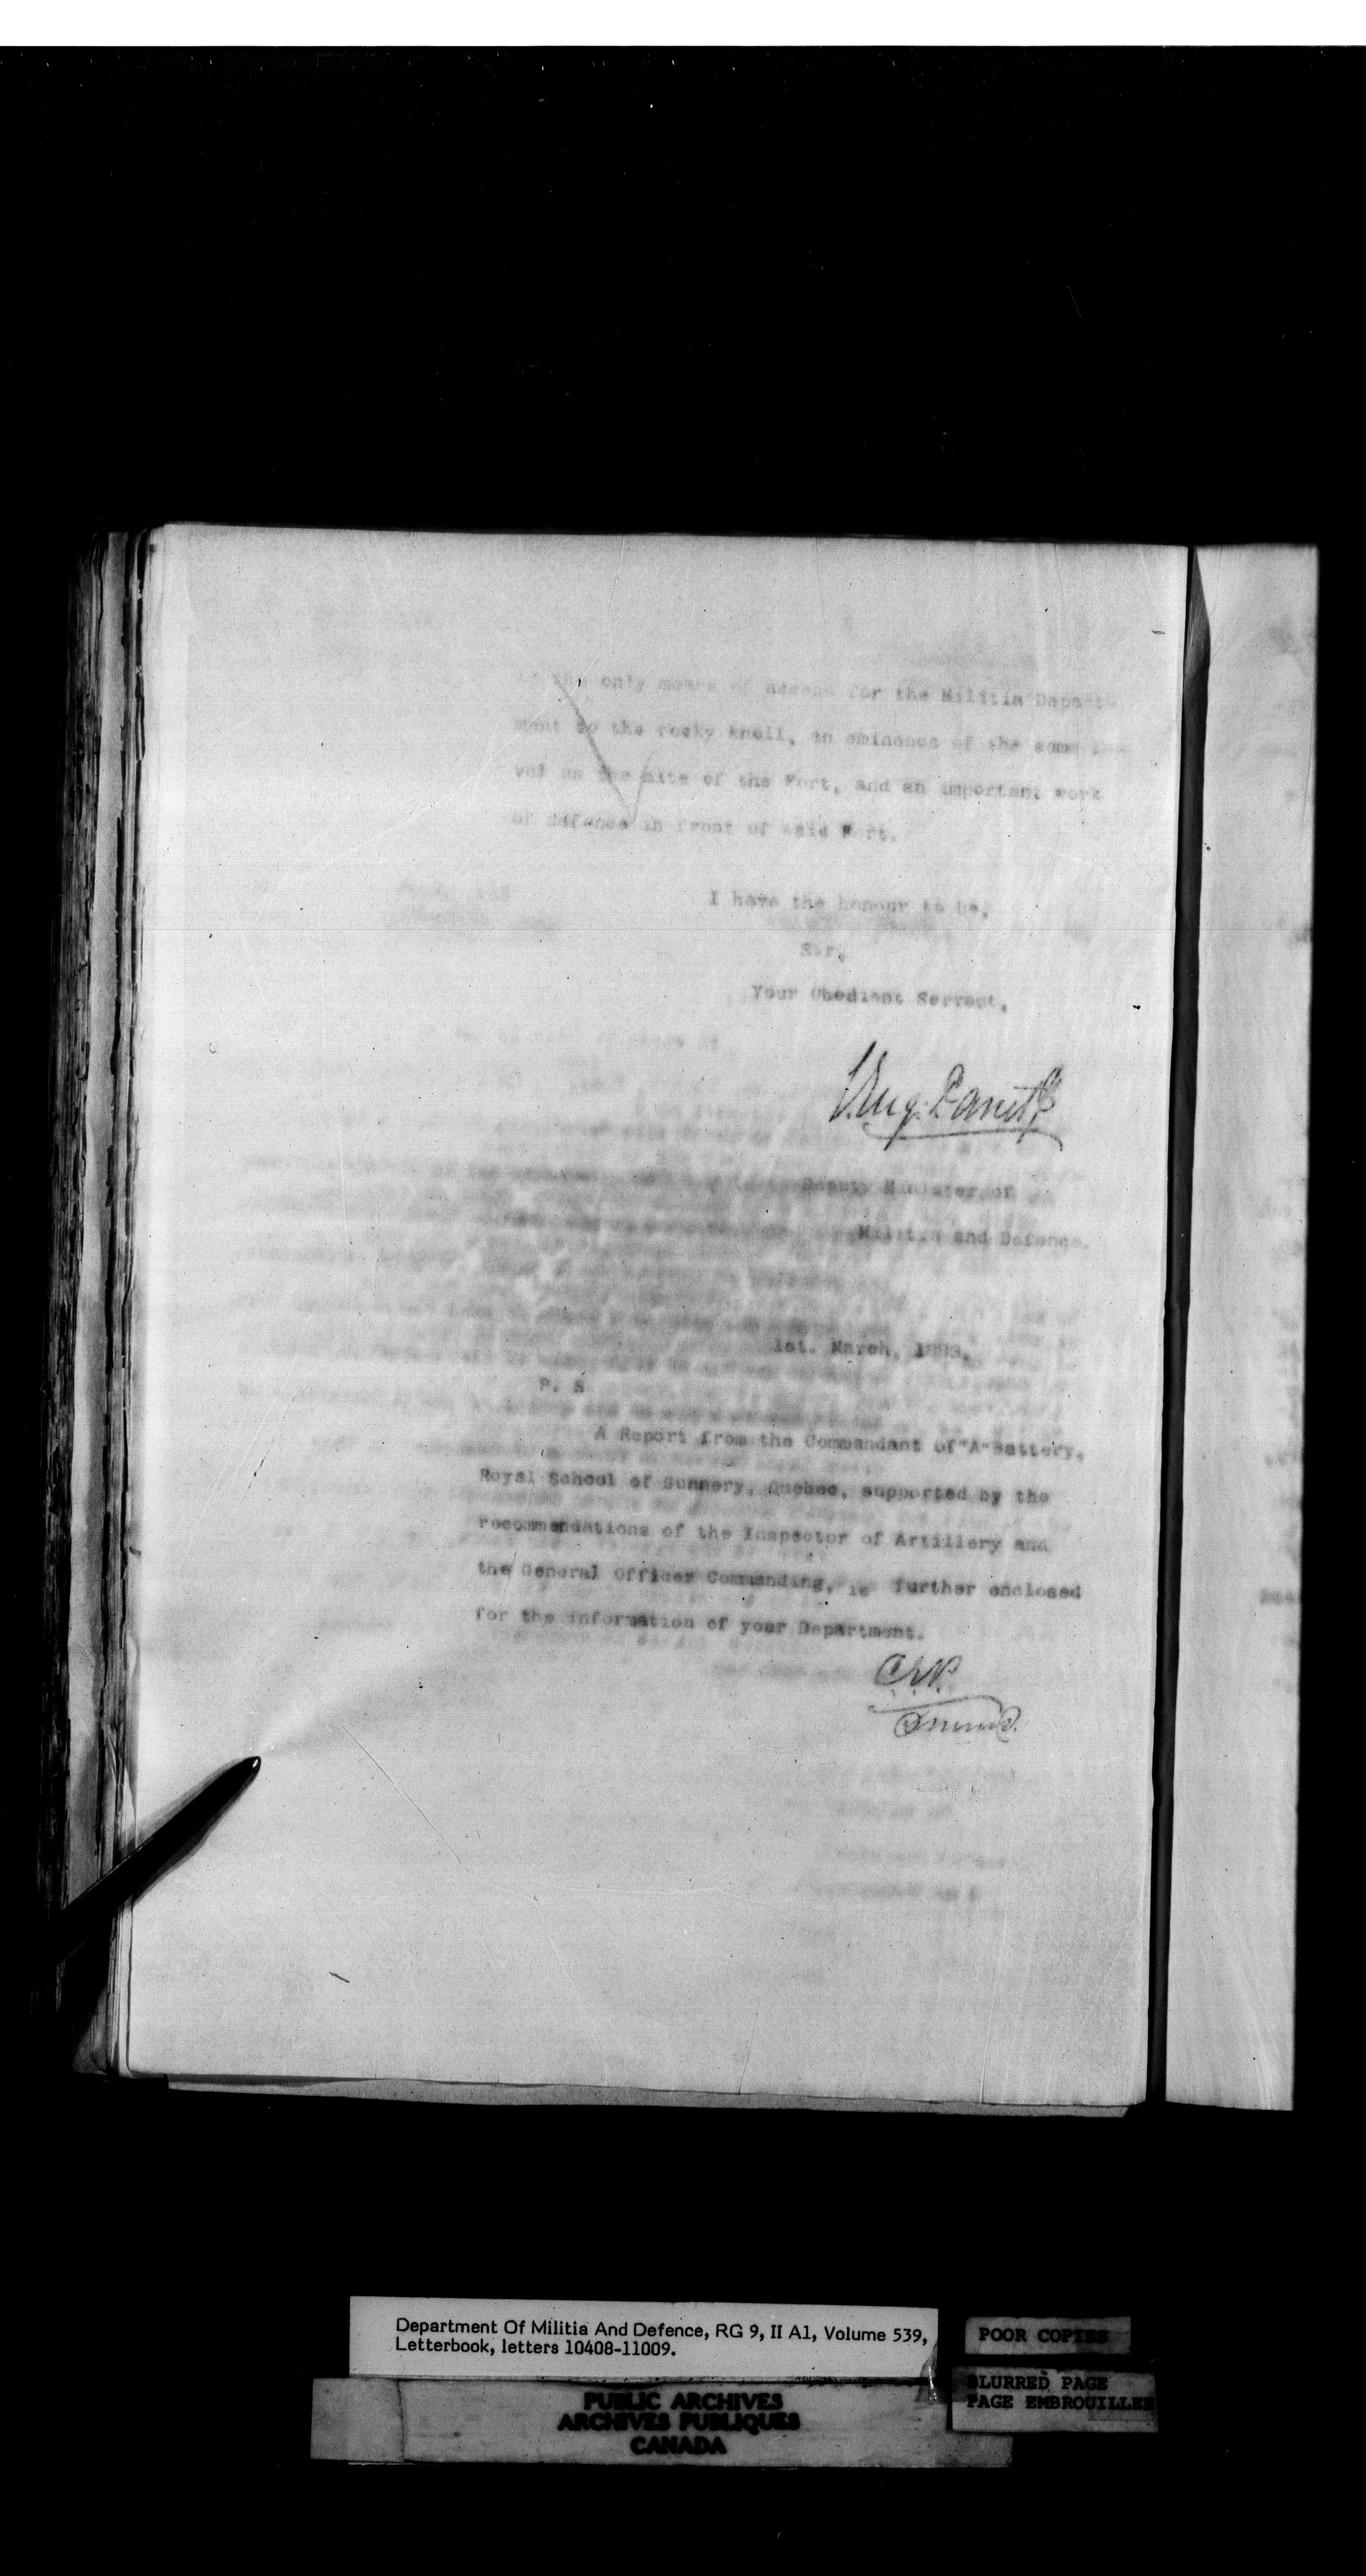 the only means of access for the Militia Depart-
ment to the rocky knoll, an eminence of the same le-
vel as the site of the Fort, and an important work
of defence in front of said Fort.
I have the honour to be,
Sir,
Your Obedient Servant,
Deputy Minister of
Militia and Defence.
1st. March, 
P. S
A Report from the Commandant of "A" Battery,
Royal School of Gunnery, Quebec, supported by the
recommendations of the Inspector of Artillery and
the General Officer Commanding, is further enclosed
for the information of your Department.
Department Of Militia And Defence, RG 9, II A1, Volume 539,
Letterbook, letters 10408-11009.
POOR COPIES
BLURRED PAGE
PAGE EMBROUILLEE
PUBLIC ARCHIVES
ARCHIVES PUBLIQUES
CANADA